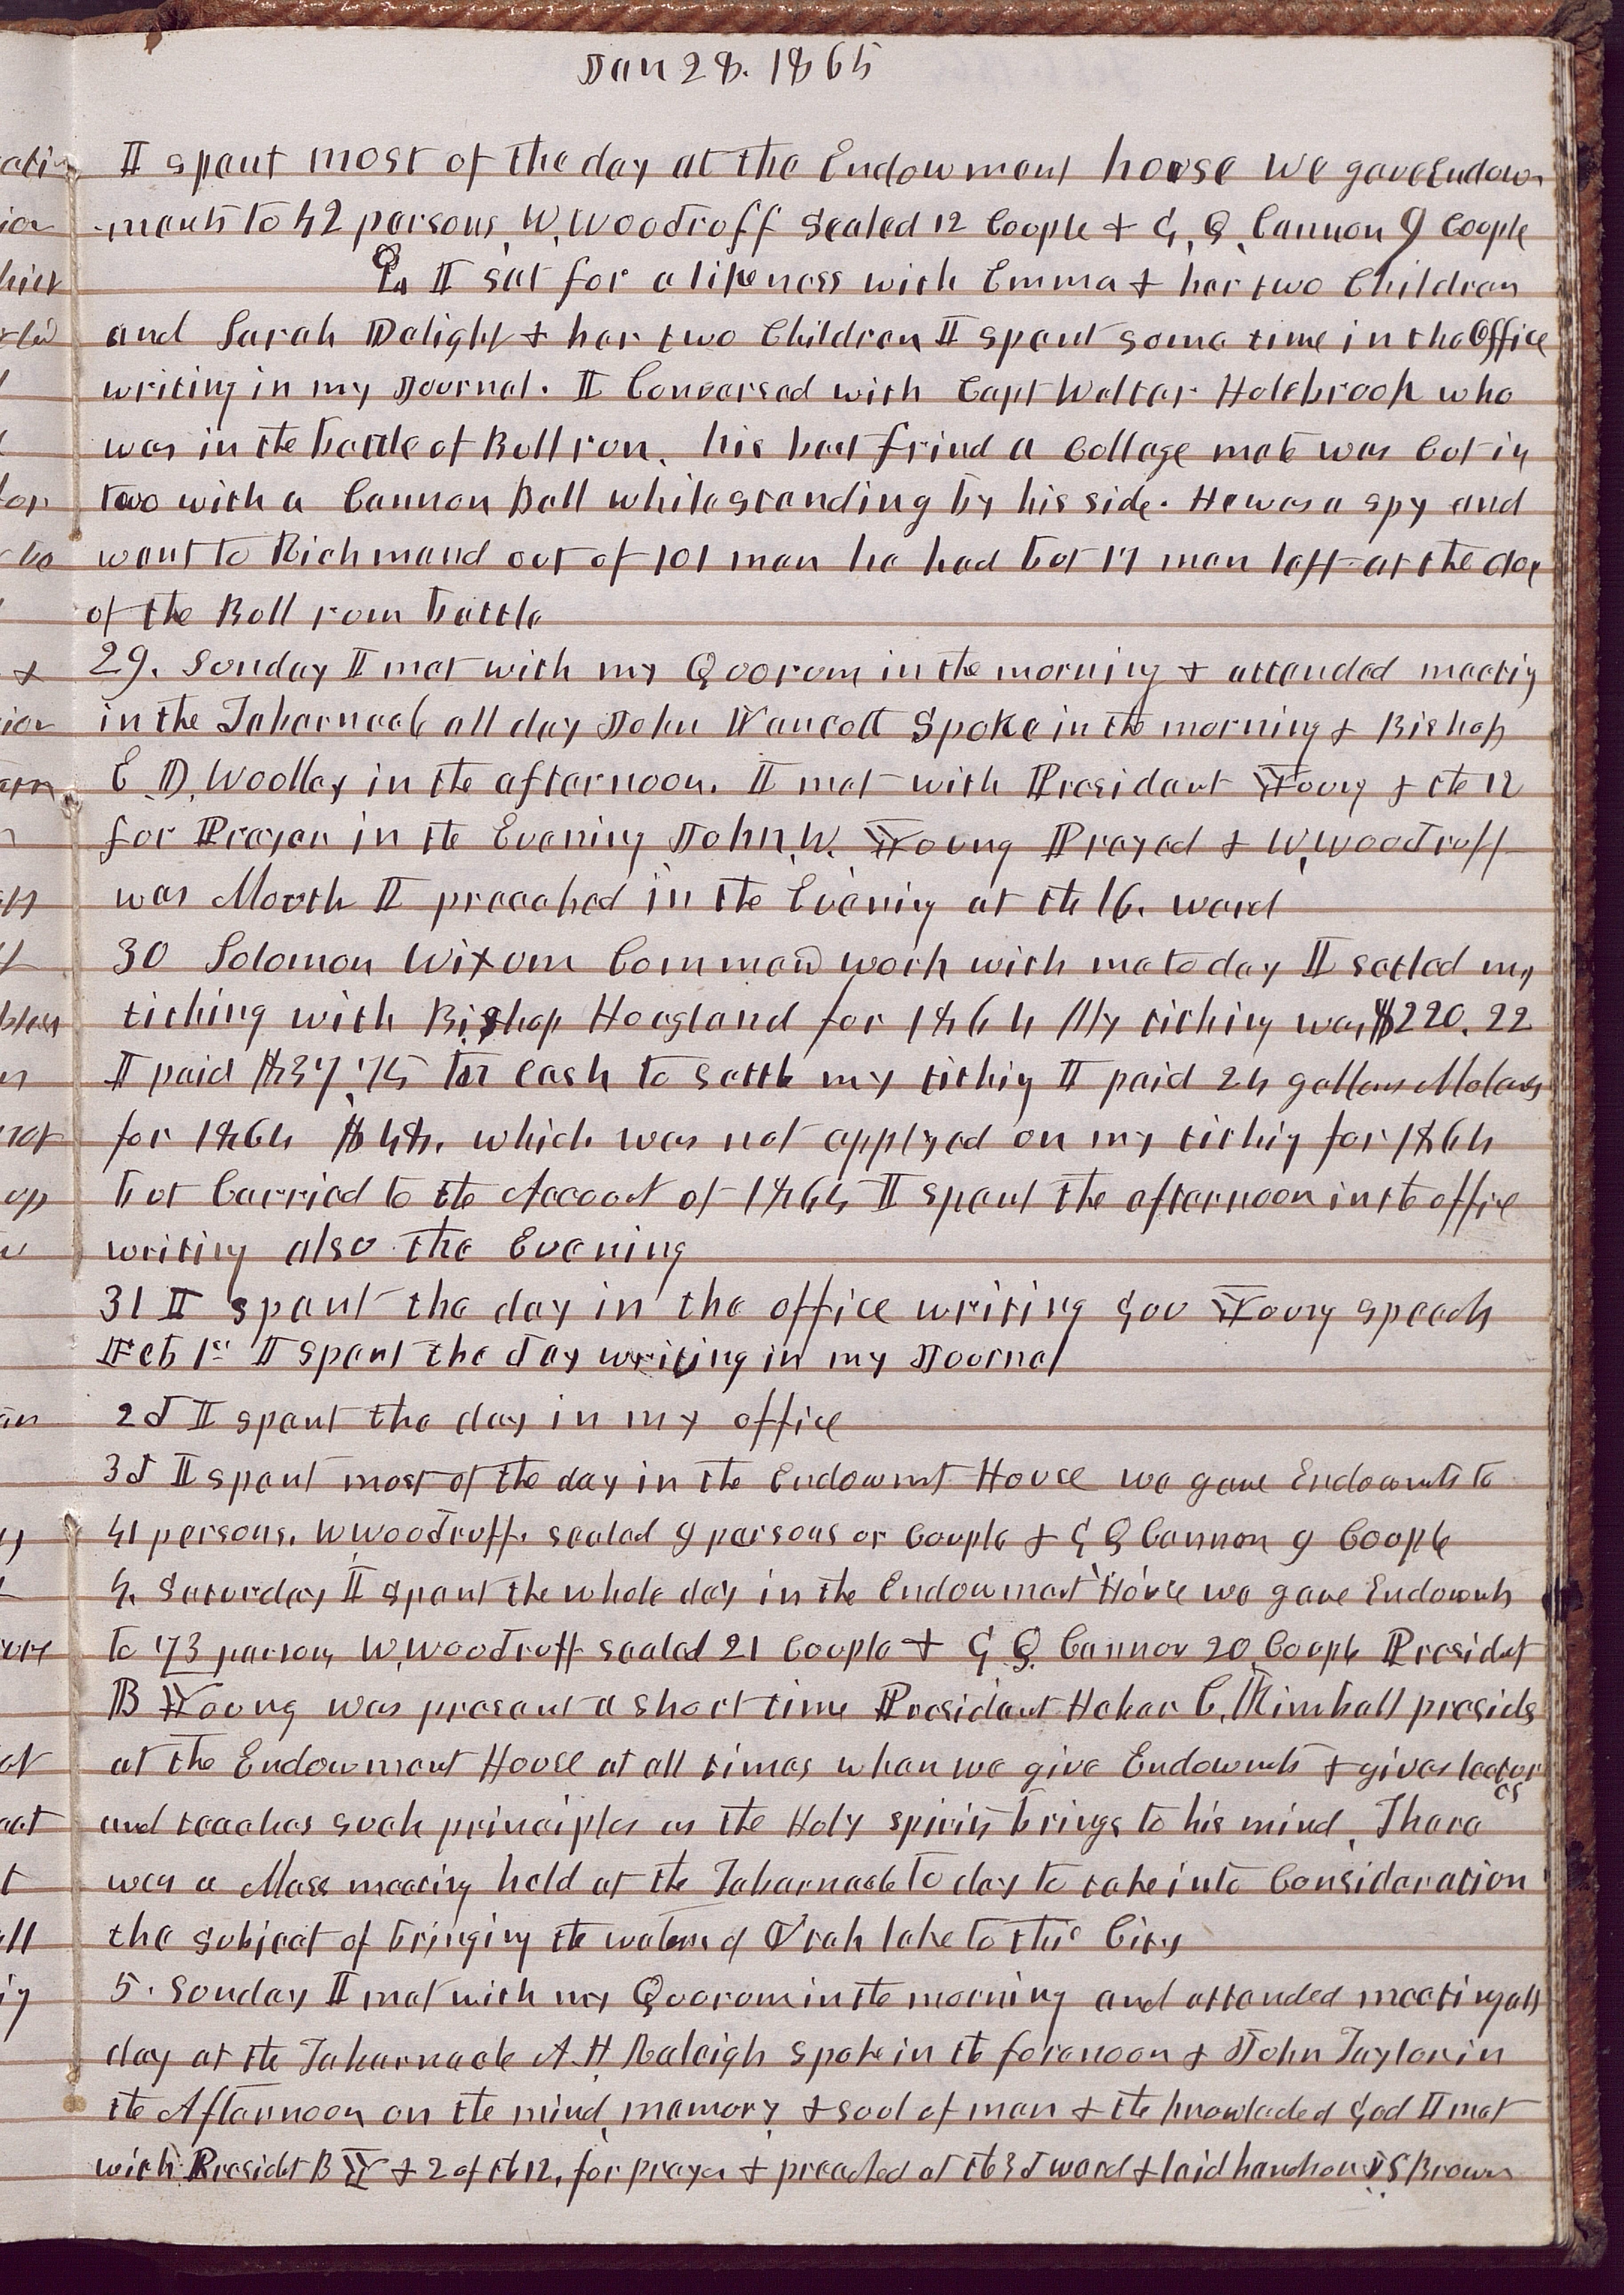 Jan 28. 1865
I spent most of the day at the Endowment house We gave Endow-
-ments to 42 persons, W, Woodruff Sealed 12 Couple & G, Q, Cannon 9 Couple
I sat for a likeness with Emma & her two Children
and Sarah Delight & her two Children I spent some time in the Office
writing in my Journal. I Conversed with Capt Walter Holebrook who
was in the battle of Bullrun. his best frind a Collage mate was Cut in
two with a Cannon Ball while standing by his side. He was a spy and
went to Richmand out of 101 men he had but 17 men left at the close
of the Bull run battle
29. Sunday I met with my Quorum in the morning & attended meetig
in the Tabernacle all day John Vancott Spoke in the morning & Bishop
E. D. Woolley in the afternoon. I met with President Young & the 12
for Prayer in the Evening John. W. Young Prayed & W. Woodruff
was Mouth I preached in the Evenig at the 16. ward
30 Solomon Wixom Commend work with me to day I setled my
tithing with Bishop Hoagland for 1864 My tithing was $220.22
I paid $37.75 in Cash to settle my tithig I paid 24 gallons Molasses
for 1864 $48. which was not applyed on my tithig for 1864
but Carried to the Account of 1865 I spent the afternoon in the office
writing also the Evening
31 I spent the day in the office writing Gov Young speech
Feb 1st I spent the day writing in my Journal
2d I spent the day in my office
3d I spent most of the day in the Endowmt House we gave Endowmts to
41 persons. W Woodruff. sealed 9 persons or Couple & G Q Cannon 9 Couple
4. Saturday I spent the whole day in the Endowment House we gave Endowmts
to 73 persons W. Woodruff sealed 21 Couple & G Q. Cannon 20 Couple Presidet
B Young was present a short time President Heber C. Kimball presids
at the Endowment House at all times when we give Endowmts & gives lectur
es
and teaches such principles as the Holy spirit brings to his mind. There
was a Mass meeting held at the Tabernacle to day to take into Consideration
the subject of bringing the waters of Utah lake to this City
5. Sunday I met with my Quorum in the morning and attended meeting all
day at the Tabernacle A. H. Raleigh spoke in the forenoon & John Taylor in
the Afternoon on the mind, memory & soul of man & the knowledge of God I met
with Presidet B Y & 2 of the 12, for prayer & preached at the 3d ward & laid hands on J S Brown